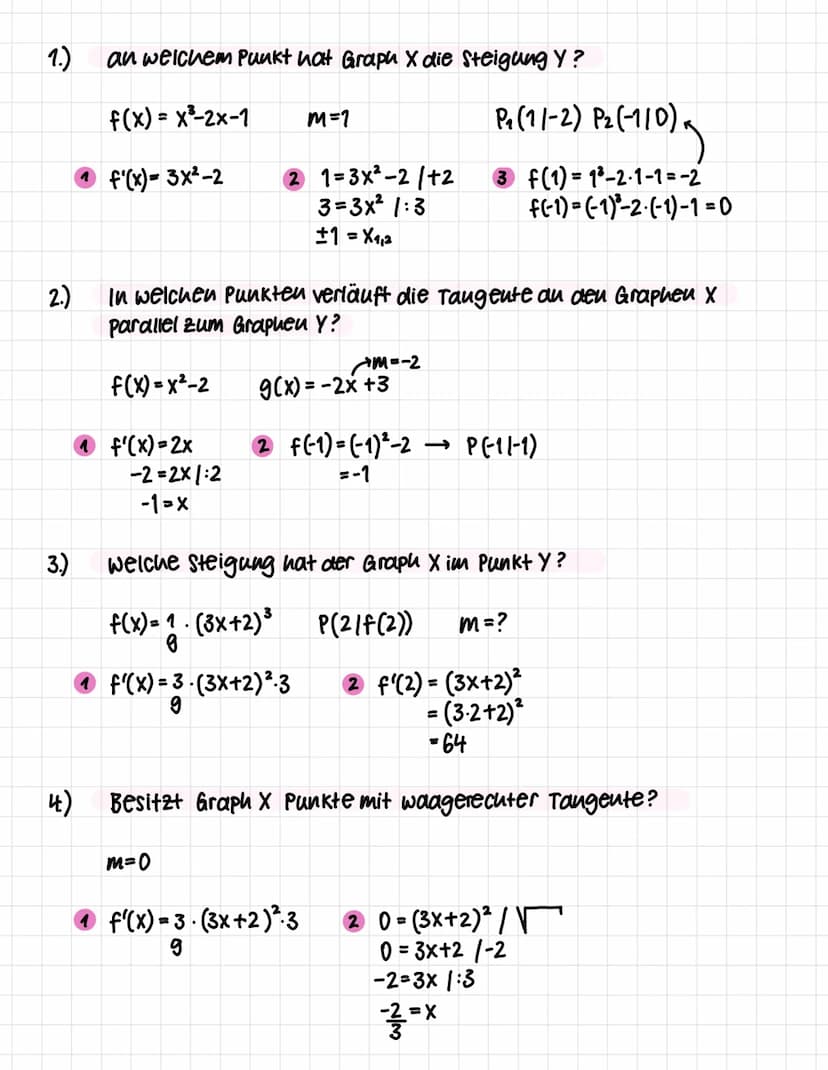 1.) an welchem Punkt hat Graph X die Steigung Y?
f(x) = x³-2x-1 m=1 P₁(1|-2) P₂(-1|0)
1 f'(x)= 3x²-2 2 1=3x²-2 /+2 3 f(1)= 1³-2·1-1=-2
3=3x² /:3 f(-1)=(-1)³-2·(-1)-1=0
±1 = x₁,₂
2.) In welchen Punkten verläuft die Tangente an den Graphen X
parallel zum Graphen Y?
→m=-2
f(x)=x²-2 g(x)=-2x+3
1 f'(x)=2x 2 f(-1)=(-1)²-2 → P(-1|-1)
-2=2x/:2 =-1
-1=x
3.) Welche Steigung hat der Graph X im Punkt Y?
f(x)= 1 · (3x+2)³ P(2|f(2)) m=?
9
1 f'(x)=3·(3x+2)²·3 2 f'(2)= (3x+2)²
9 = (3·2+2)²
=64
4.) Besitzt Graph X Punkte mit waagerechter Tangente?
m=0
1 f'(x)=3·(3x+2)²·3 2 0=(3x+2)² /√
9 0=3x+2 /-2
-2=3x /:3
-2/3 = x